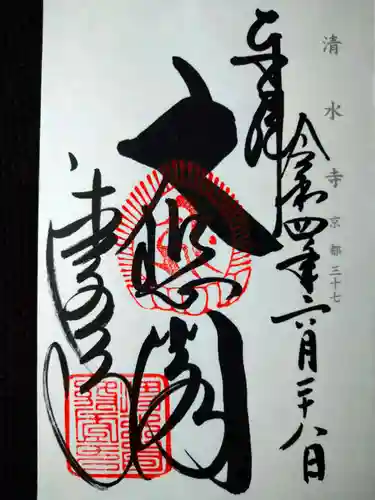 清水寺 京都 三十七
奉拝 令和四年六月二十八日
大悲閣
清水寺